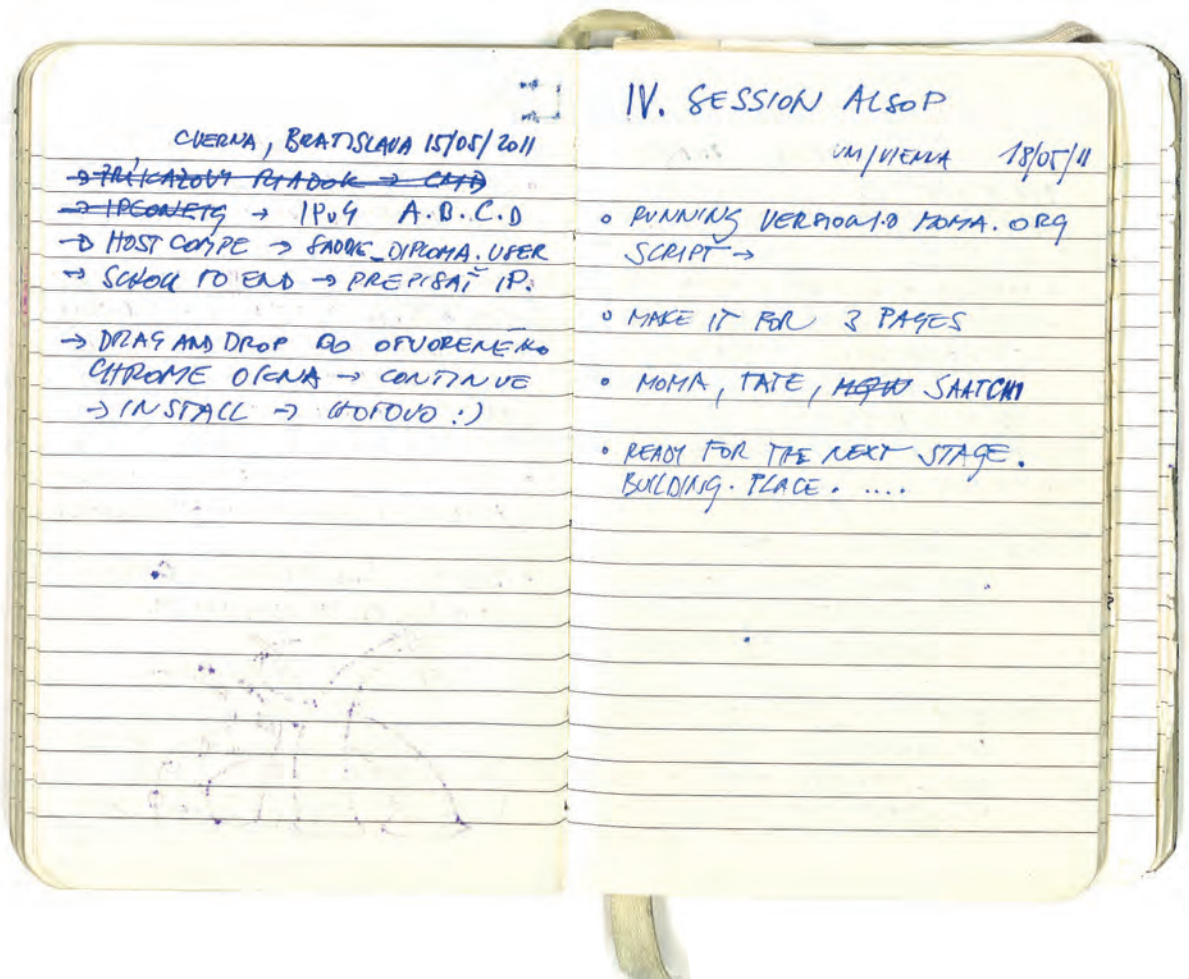 CVERNA, BRATISLAVA 15/05/2011
→ PRÍKAZOVÝ RIADOK → CMD
→ IPCONFIG → IPv4 A.B.C.D
→ HOST COMPE → _DIPLOMA.USER
→ SCROLL TO END → PREPÍSAŤ IP.
→ DRAG AND DROP DO OTVORENÉHO
CHROME OKNA → CONTINUE
→ INSTALL → HOTOVO :)
IV. SESSION ALSOP
VM/VIENNA 18/05/11
• RUNNING VERSION 1.0 MOMA.ORG
SCRIPT →
• MAKE IT FOR 3 PAGES
• MOMA, TATE, SAATCHI
• READY FOR THE NEXT STAGE.
BUILDING. PLACE. ....